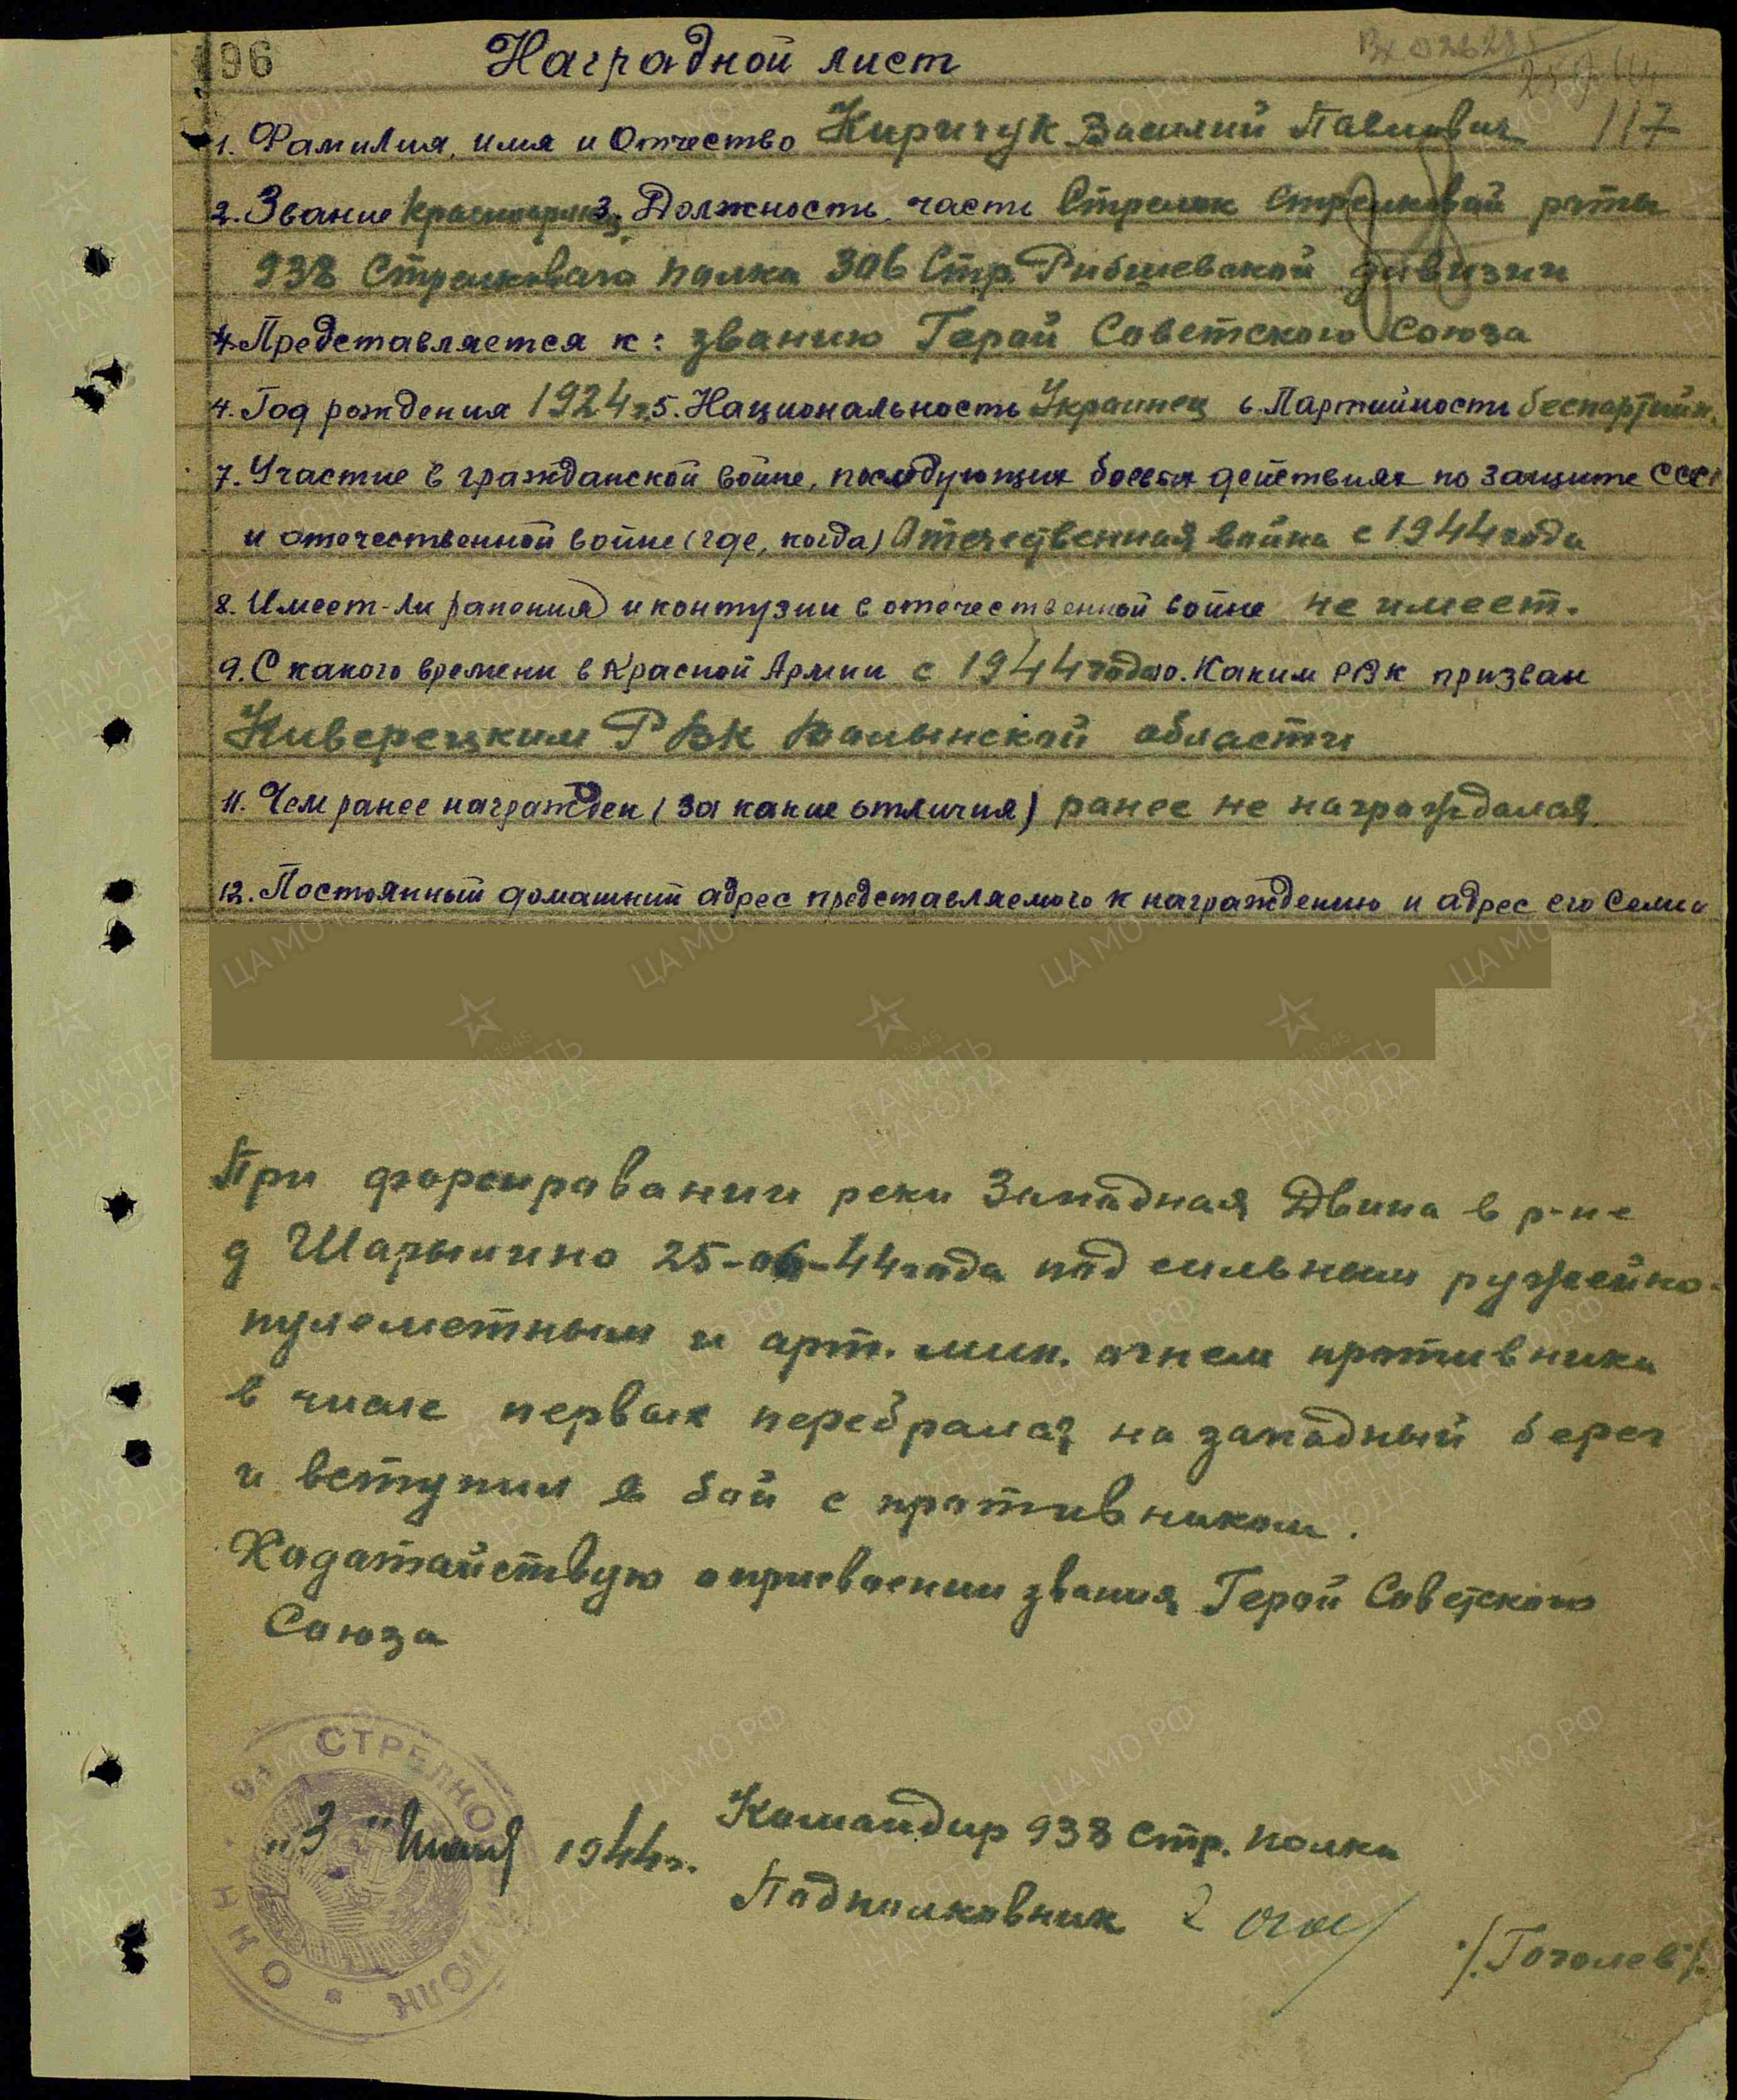 96
Наградной лист
117
1. Фамилия, имя и Отчество Киричук Василий Павлович
2. Звание Красноармеец 3. Должность, часть Стрелок Стрелковой роты
938 Стрелкового полка 306 Стр. Рибшевской дивизии
4. Представляется к: званию Герой Советского Союза
4. Год рождения 1924 г. 5. Национальность Украинец 6. Партийность беспартийн.
7. Участие в гражданской войне, последующих боевых действиях по защите СССР
и отечественной войне (где, когда) Отечественная война с 1944 года
8. Имеет-ли ранения и контузии в отечественной войне не имеет.
9. С какого времени в Красной Армии с 1944 года 10. Каким РВК призван
Киверецким РВК Волынской области
11. Чем ранее награжден (за какие отличия) ранее не награждался.
12. Постоянный домашний адрес представляемого к награждению и адрес его Семьи
При форсировании реки Западная Двина в р-не
д Шарыпино 25-06-44 года под сильным ружейно-
пулеметным и арт. мин. огнем противника
в числе первых перебрался на западный берег
и вступил в бой с противником.
Ходатайствую о присвоении звания Герой Советского
Союза
СТРЕЛКО
"3" Июля 1944 г.
Командир 938 стр. полка
Подполковник
/Гоголев/.
ПАМЯТЬ НАРОДА
ЦА МО РФ